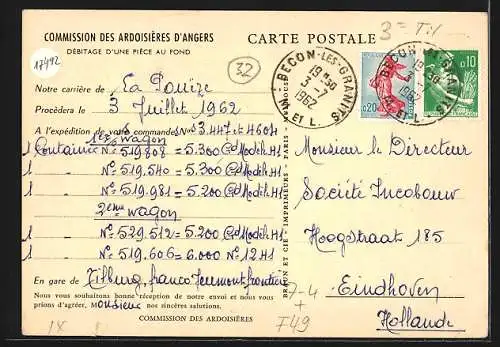 COMMISSION DES ARDOISIÈRES D'ANGERS
DÉBITAGE D'UNE PIÈCE AU FOND
17492
32
CARTE POSTALE
3 =
BECON-LES-GRANITS
19 H 30
3 - 7
1962
M. ET L.
0,20
BECON-LES-GRANITS
3 - 7
1962
M. ET L.
0,10
Notre carrière de La Pouëze
Procèdera le 3 Juillet 1962
A l'expédition de votre commande N° 3.447 et 4604
1er wagon
1 Containair N° 519.808 = 5.300 Gd Modèle H1
1 N° 519.540 = 5.300 Gd Modèle H1
1 N° 519.981 = 5.200 Gd Modèle H1
2ème wagon
1 N° 529.512 = 5.200 Gd Modèle H1
1 N° 519.606 = 6.000 N° 12 H1
En gare de Tilburg, franco Jeumont frontière
Nous vous souhaitons bonne réception de notre envoi et nous vous
prions d'agréer, Monsieur nos sincères salutations.
COMMISSION DES ARDOISIÈRES
BRAUN ET CIE - IMPRIMEURS - PARIS
Monsieur le Directeur
Société Incobouw
Hoogstraat 185
Eindhoven
Hollande
7-4
+
F49
1X